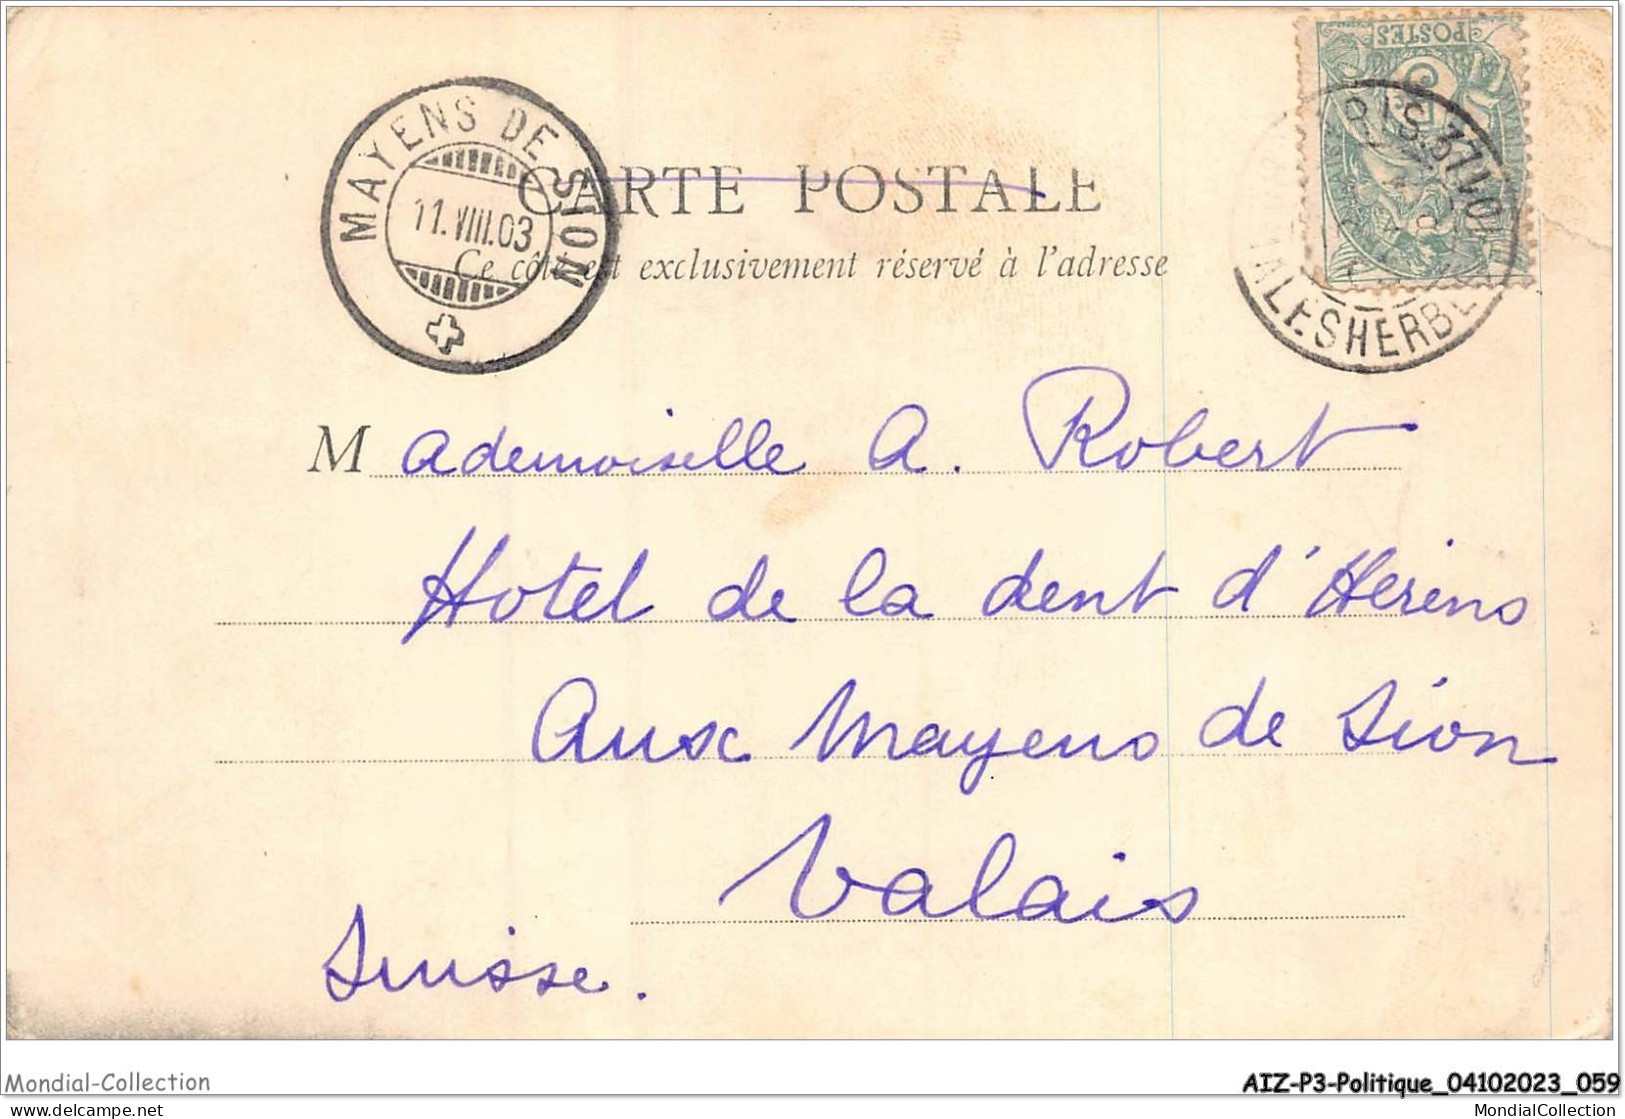 POSTES
MAYENS DE SION
11.VIII.03
CARTE POSTALE
Ce côté est exclusivement réservé à l'adresse
Mademoiselle A. Robert
Hotel de la dent d'Herens
Aux Mayens de Sion
Valais
Suisse.
Mondial-Collection
AIZ-P3-Politique_04102023_059
www.delcampe.net
MondialCollection